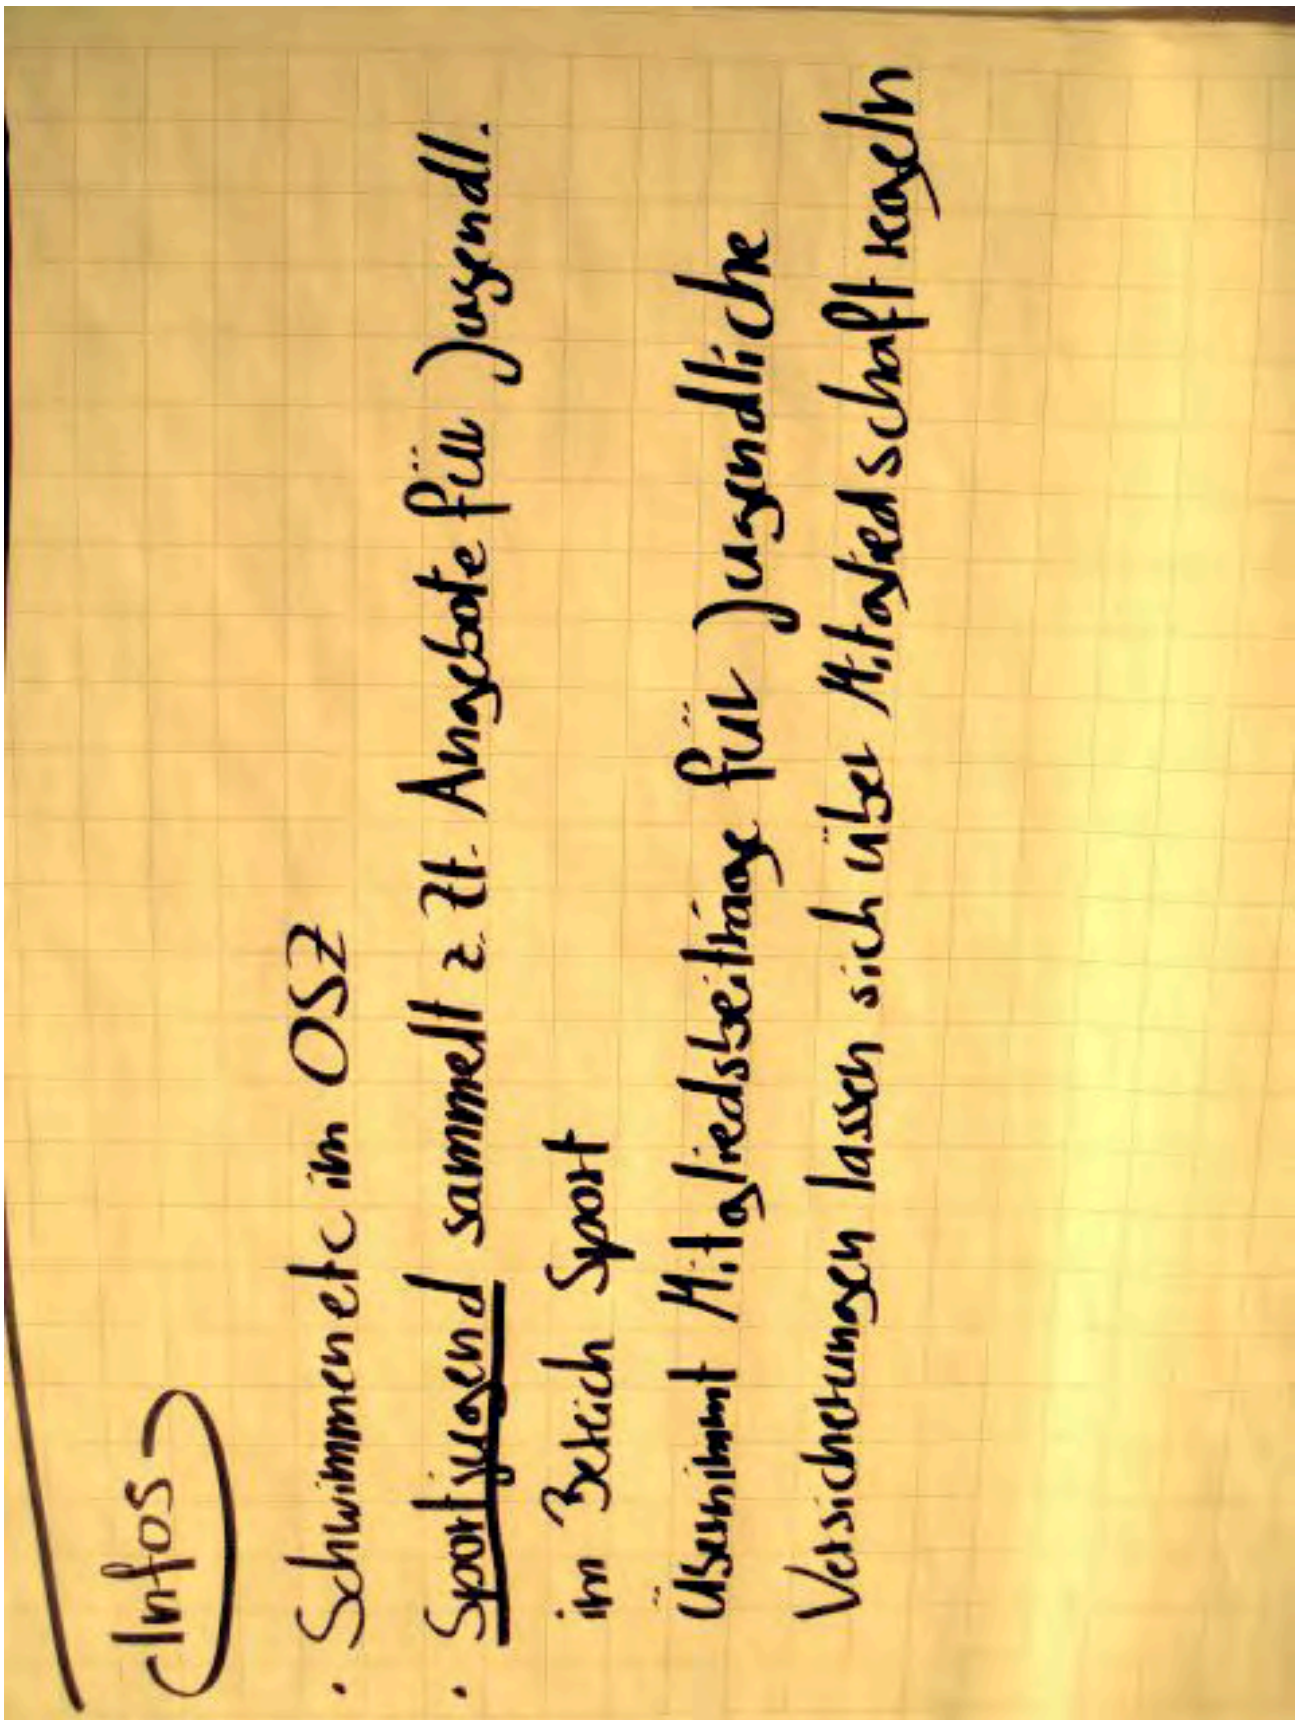 Infos
· Schwimmen etc im OSZ
· Sportjugend sammelt z. Zt. Angebote für Jugendl.
im Bereich Sport
Übernimmt Mitgliedsbeiträge für Jugendliche
Versicherungen lassen sich über Mitgliedschaft regeln